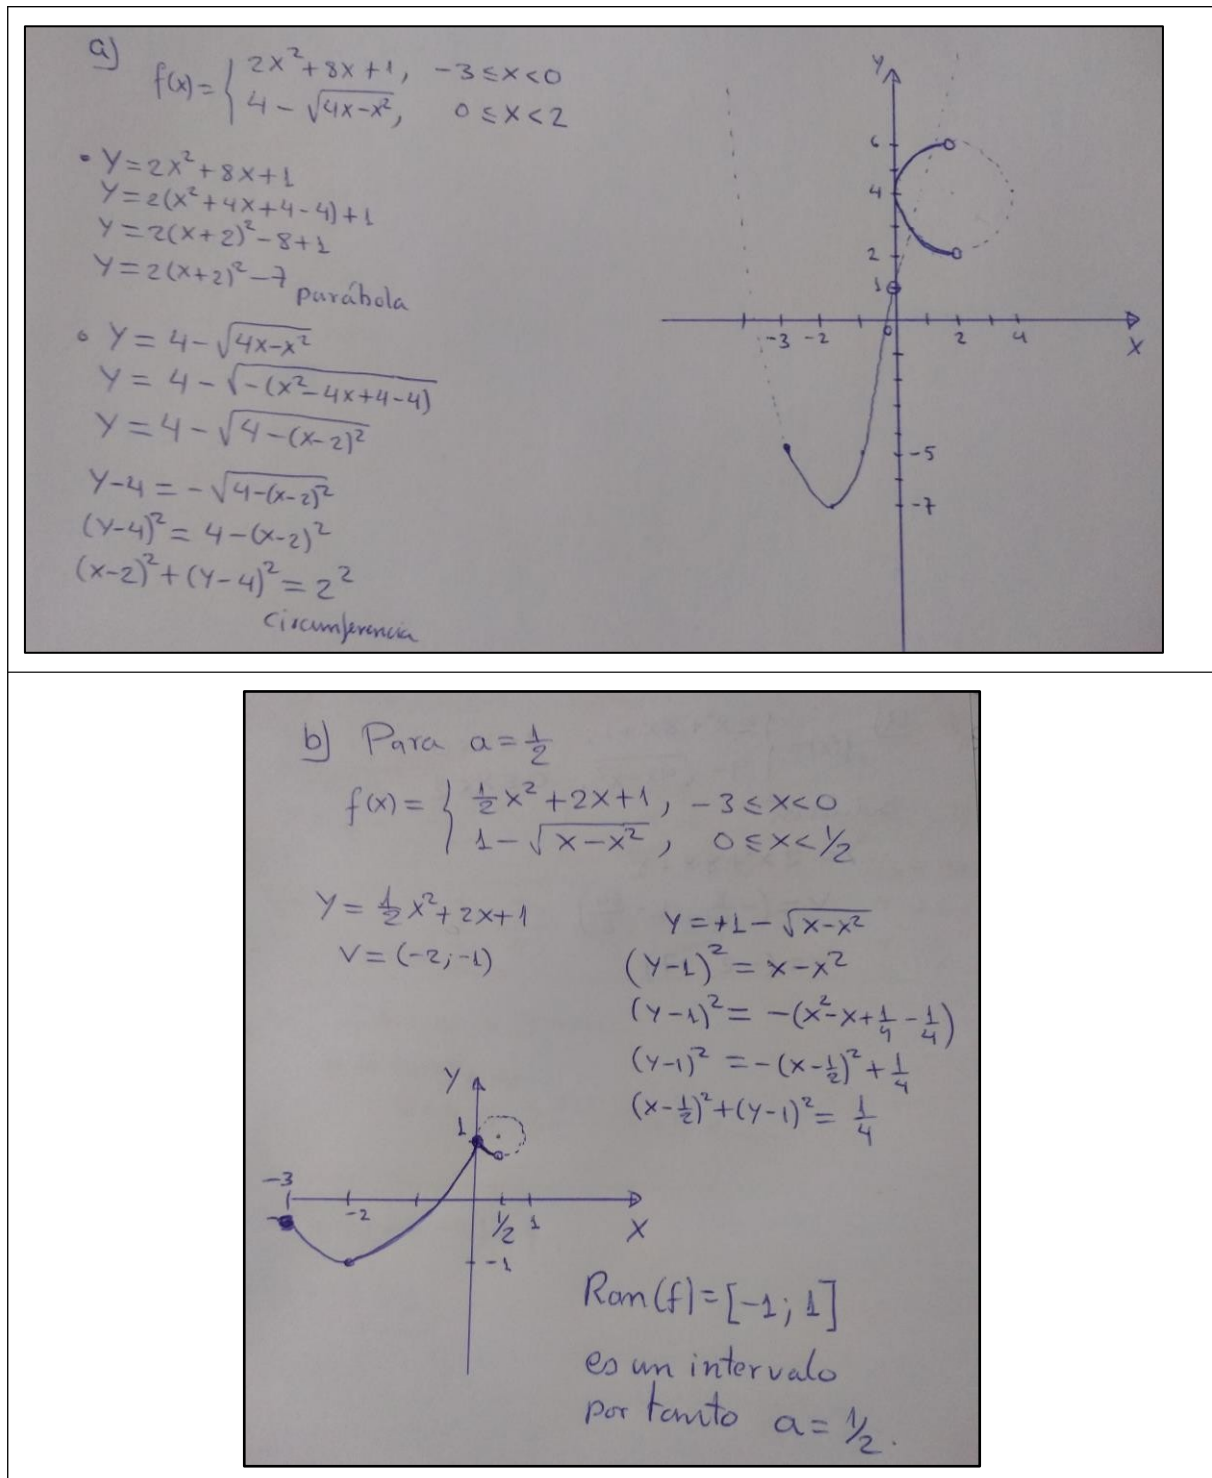 a)
f(x) = { 2x²+8x+1, -3 ≤ x < 0
4 - √(4x-x²), 0 ≤ x < 2
• Y = 2x²+8x+1
Y = 2(x²+4x+4-4)+1
Y = 2(x+2)²-8+1
Y = 2(x+2)²-7 parábola
• Y = 4-√(4x-x²)
Y = 4-√(-(x²-4x+4-4))
Y = 4-√(4-(x-2)²)
Y-4 = -√(4-(x-2)²)
(Y-4)² = 4-(x-2)²
(x-2)²+(Y-4)² = 2²
circunferencia
Y
6
4
2
1
-3 -2 0 2 4
X
-5
-7
b) Para a = 1/2
f(x) = { 1/2 x²+2x+1, -3 ≤ x < 0
1-√(x-x²), 0 ≤ x < 1/2
Y = 1/2 x²+2x+1
V = (-2;-1)
Y = +1-√(x-x²)
(Y-1)² = x-x²
(Y-1)² = -(x²-x+1/4-1/4)
(Y-1)² = -(x-1/2)²+1/4
(x-1/2)²+(Y-1)² = 1/4
Y
1
-3
-2 1/2 1
X
-1
Ran(f) = [-1; 1]
es un intervalo
por tanto a = 1/2.